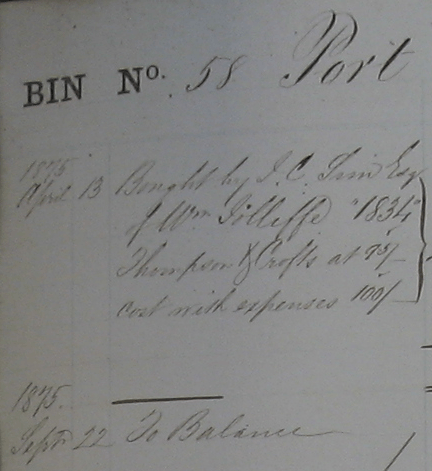 BIN No. 58 Port
1875
April 13 Bought by J. C. Esq
of Wm Jolliffe "1834"
Thompson & Crofts at 95/
cost with expenses 100/
1875.
Septr 22 To Balance